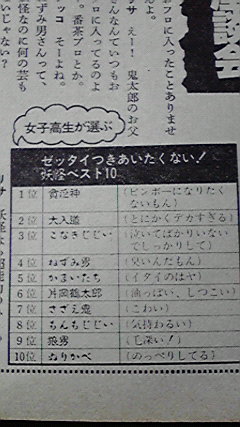 座談会
おフロに入ったことありませ
んよ。
リサ えー! 鬼太郎のお父
さんなんていつもお
フロに入ってるのよ
。番茶フロとか。
ッコ そーよね。
ずみ男さんって
怪なのに何の芸も
いじゃない?
女子高生が選ぶ
ゼッタイつきあいたくない!
妖怪ベスト10
1位 貧乏神 (ビンボーになりたくないもん)
2位 大入道 (とにかくデカすぎる)
3位 こなきじじい (泣いてばかりいないでしっかりして)
4位 ねずみ男 (臭いんだもん)
5位 かまいたち (イタイのはヤ)
6位 片岡鶴太郎 (油っぽい、しつこい)
7位 さざえ鬼 (こわい)
8位 もんもじじい (気持わるい)
9位 狼男 (毛深い!)
10位 ぬりかべ (のっぺりしてる)
リサ 妖怪なら